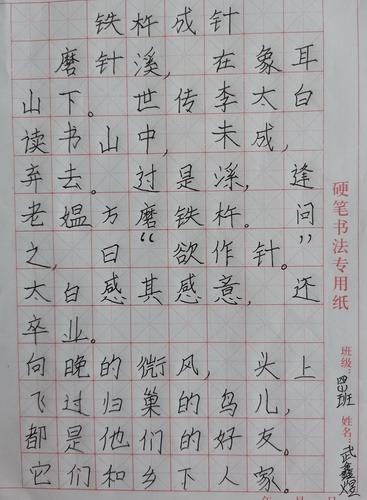 铁杵成针
磨针溪,在象耳
山下。世传李太白
读书山中,未成,
弃去。过是溪,逢
老媪方磨铁杵。问
之,曰“欲作针。”
太白感其感意,还
卒业。
向晚的微风,头上
飞过归巢的鸟儿,
都是他们的好友。
它们和乡下人家。
硬笔书法专用纸
班级:四班 姓名:武鑫煜
年 月 日